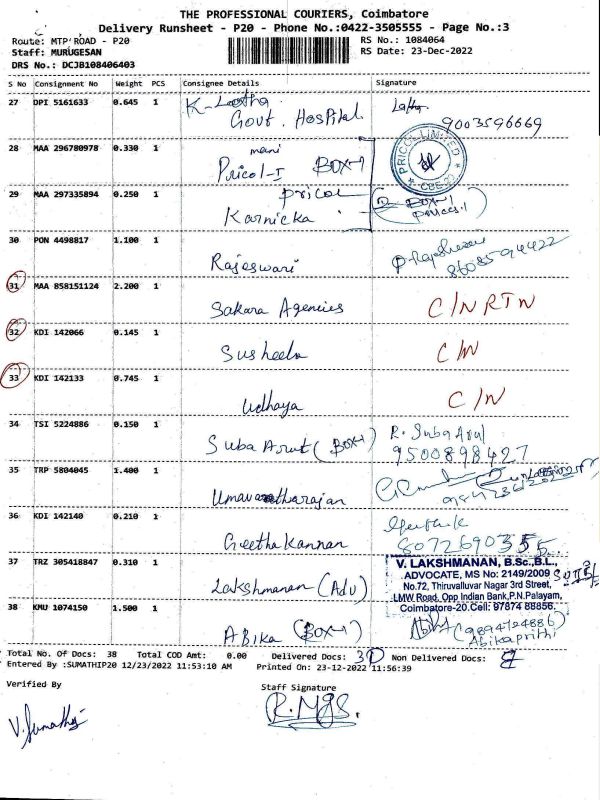 THE PROFESSIONAL COURIERS, Coimbatore
Delivery Runsheet - P20 - Phone No.:0422-3505555 - Page No.:3
Route: MTP ROAD - P20 RS No.: 1084064
Staff: MURUGESAN RS Date: 23-Dec-2022
DRS No.: DCJB108406403
S No Consignment No Weight PCS Consignee Details Signature
27 DPI 5161633 0.645 1 K-Latha Latha
Govt. Hospital 9003596669
28 MAA 296780978 0.330 1 mani
Pricol-I BOX-1 PRICOL LIMITED CBE-20
29 MAA 297335894 0.250 1 pricol BOX-1
Karnicka Pricol-1
30 PON 4498817 1.100 1 Rajeswari 8608594422
31 MAA 858151124 2.200 1 Sakara Agencies C/N RTN
32 KDI 142066 0.145 1 Susheela C/N
33 KDI 142133 0.745 1 Udhaya C/N
34 TSI 5224886 0.150 1 Suba Arul (BOX-1) R. Suba Arul
9500898427
35 TRP 5804045 1.400 1
36 KDI 142140 0.210 1 Geetha Kannan 8072690355
37 TRZ 305418847 0.310 1 Lakshmanan (Adv) V. LAKSHMANAN, B.Sc.,B.L.,
ADVOCATE, MS No: 2149/2009
No.72, Thiruvalluvar Nagar 3rd Street,
LMW Road, Opp Indian Bank,P.N.Palayam,
Coimbatore-20.Cell: 97874 88856.
38 KMU 1074150 1.500 1 ABika (BOX-1) (9894724886)
Abikaprithi
Total No. Of Docs: 38 Total COD Amt: 0.00 Delivered Docs: Non Delivered Docs:
Entered By :SUMATHIP20 12/23/2022 11:53:10 AM Printed On: 23-12-2022 11:56:39
Verified By Staff Signature
V. Sumathi R. Mgs.